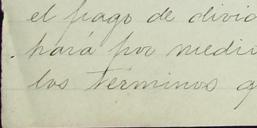 el pago de divid
hará por medi
los términos q